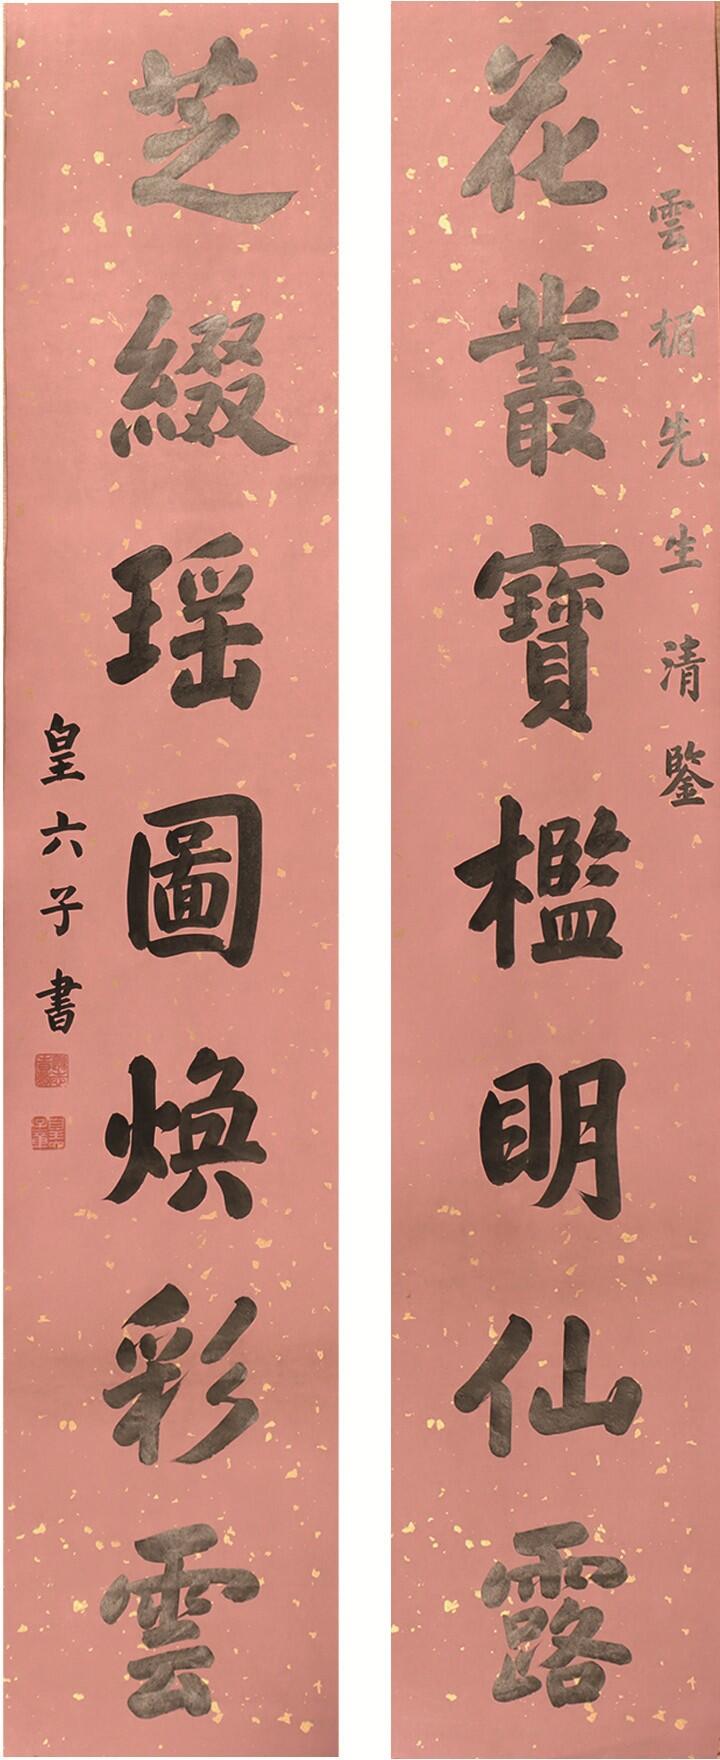 雲楣先生清鑒
花叢寶檻明仙露
芝綴瑶圖煥彩雲
皇六子書